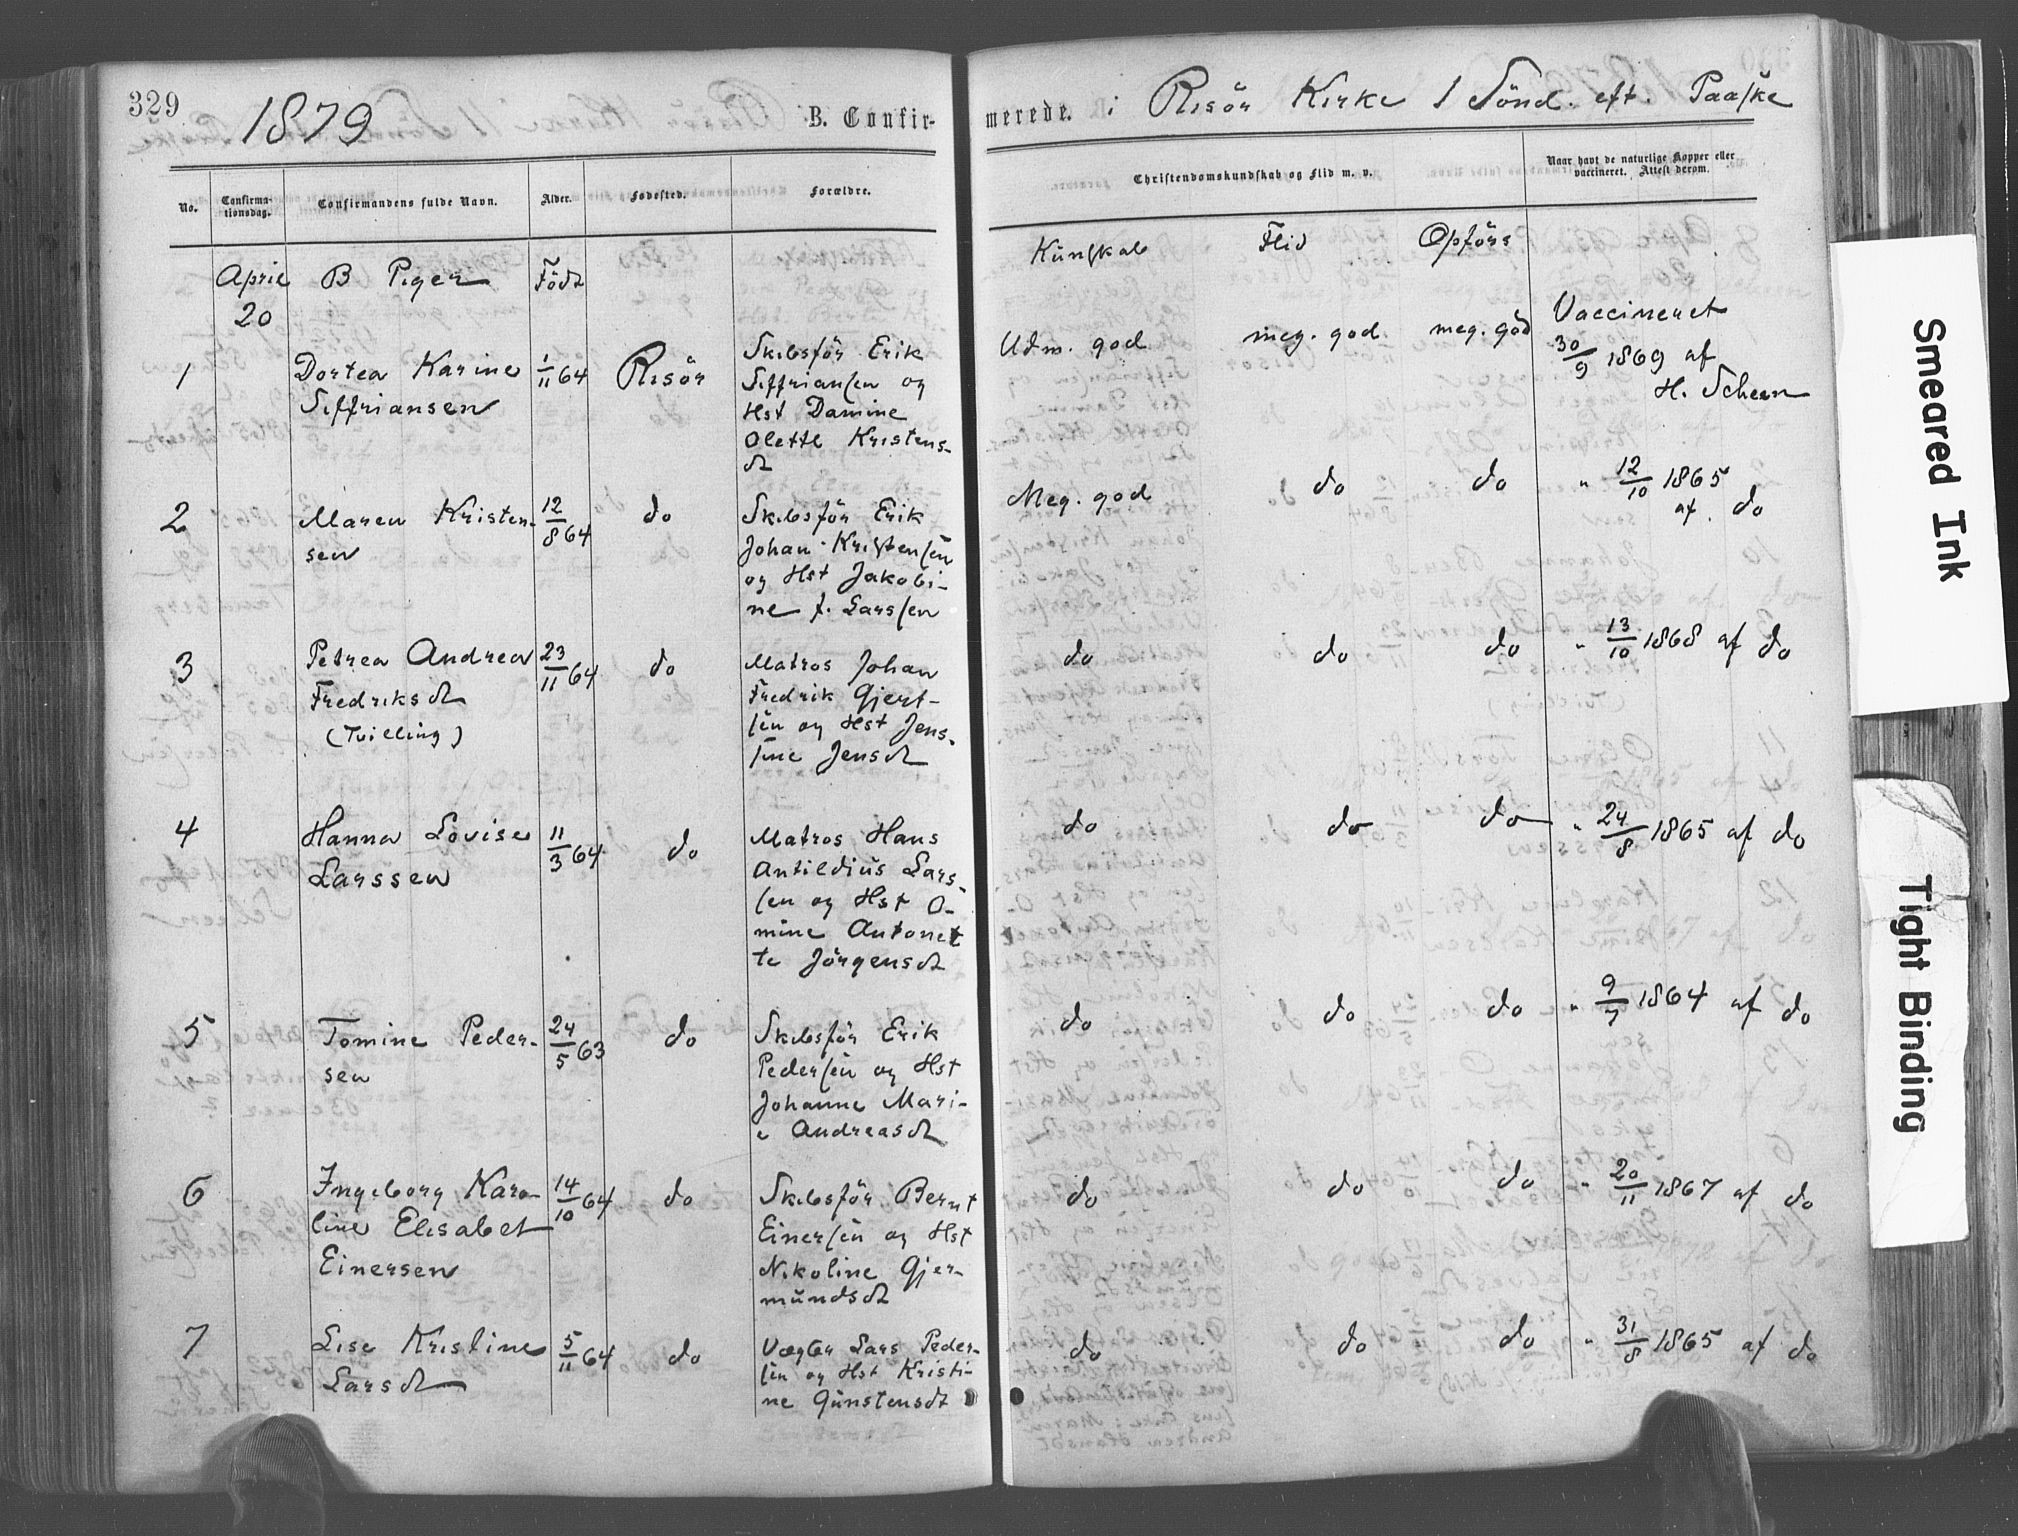 329
1879
B. Confir-
merede. i Risör Kirke 1 Sönd. eft. Paaske
No.
Confirma-
tionsdag.
Confirmandens fulde Navn.
Alder.
Fødested.
Forældre.
Christendomskundskab og Flid m. v.
Naar havt de naturlige Kopper eller
vaccineret. Attest derom.
Kunskab Flid Opförs
April B Piger Födt
20
1
Dortea Karine
Siffriansen
1/11 64
Risör
Skibsför Erik
Siffriansen og
Hst Damine
Olette Kristens-
dt
Udm. god meg. god meg. god
Vaccineret
30/9 1869 af
H. Scheen
2
Maren Kristen-
sen
12/8 64
do
Skibsför Erik
Johan Kristensen
og Hst Jakobi-
ne f. Larssen
Meg. god do do " 12/10 1865
af. do
3
Petrea Andrea
Fredriksdt
(Tvilling)
23/11 64
do
Matros Johan
Fredrik Gjert-
sen og Hst Jens-
sine Jensdt
do do do " 13/10 1868 af do
4
Hanna Lovise
Larssen
11/3 64
do
Matros Hans
Antildius Lars-
sen og Hst O-
mine Antonet
te Jörgensdt
do do do " 24/8 1865 af do
5
Tomine Peder-
sen
24/5 63
do
Skibsför Erik
Pedersen og Hst
Johanne Mari-
e Andreasdt
do do do " 9/7 1864 af do
6
Ingeborg Karo-
line Elisabet
Einersen
14/10 64
do
Skibsför Bernt
Einersen og Hst
Nikoline Gjer-
mundsdt
do do do " 20/11 1867 af do
7
Lise Kristine
Larsdt
5/11 64
do
Vægter Lars Peder-
sen og Hst Kristi-
ne Gunstensdt
do do do " 31/8 1865 af do
Smeared Ink
Tight Binding